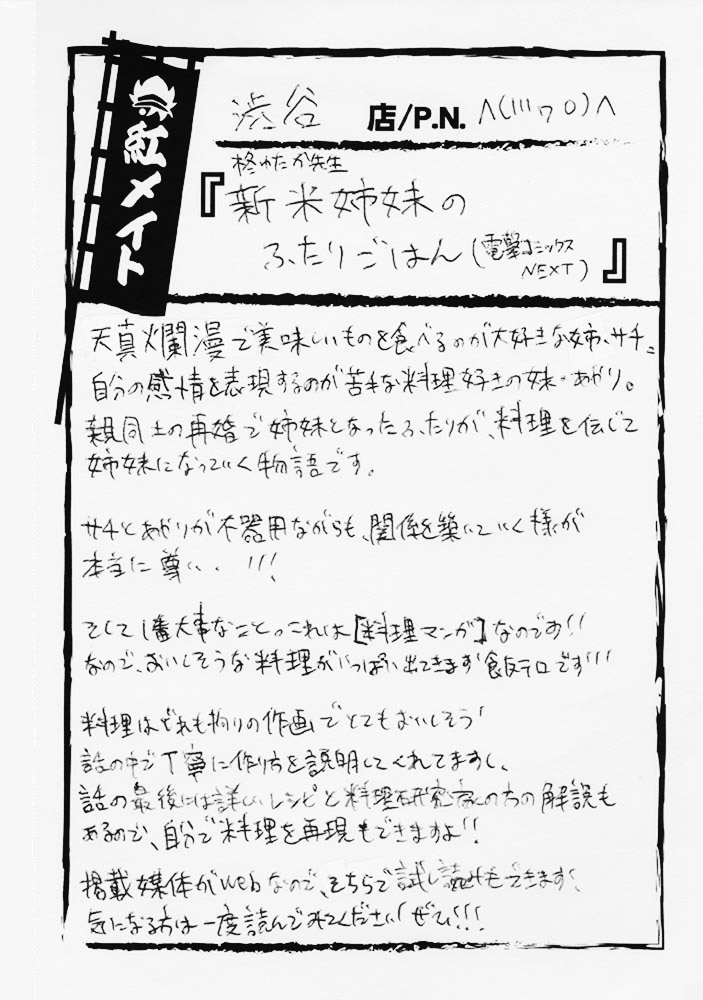 紅メイト
渋谷 店/P.N. ∧(՝՝՝ワ0)∧
柊ゆたか先生
『新米姉妹の
ふたりごはん(電撃コミックス
NEXT)』
天真爛漫で美味しいものを食べるのが大好きな姉・サチと
自分の感情を表現するのが苦手な料理好きの妹・あやり。
親同士の再婚で姉妹となったふたりが、料理を伝じて
姉妹になっていく物語です。
サチとあやりが不器用ながらも、関係を築いていく様が
本当に尊い、、!!!
そして1番大事なこと。これは[料理マンガ]なのです!!
なので、おいしそうな料理がいっぱい出てきます 飯テロです!!!
料理はどれも拘りの作画でとてもおいしそう!
話の中で丁寧に作り方を説明してくれてますし、
話の最後には詳しいレシピと料理研究家の方の解説も
あるので、自分で料理を再現もできますよ!!
掲載媒体がwebなので、そちらで試し読みもできます、
気になる方は一度読んでみてください!ぜひ!!!